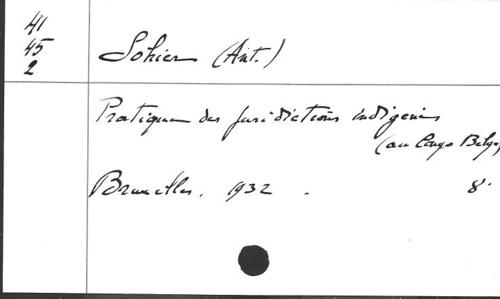 41
45
2
Sohier (Ant.)
Pratique des juridictions indigènes
(au Congo Belge)
Bruxelles. 1932. 8°